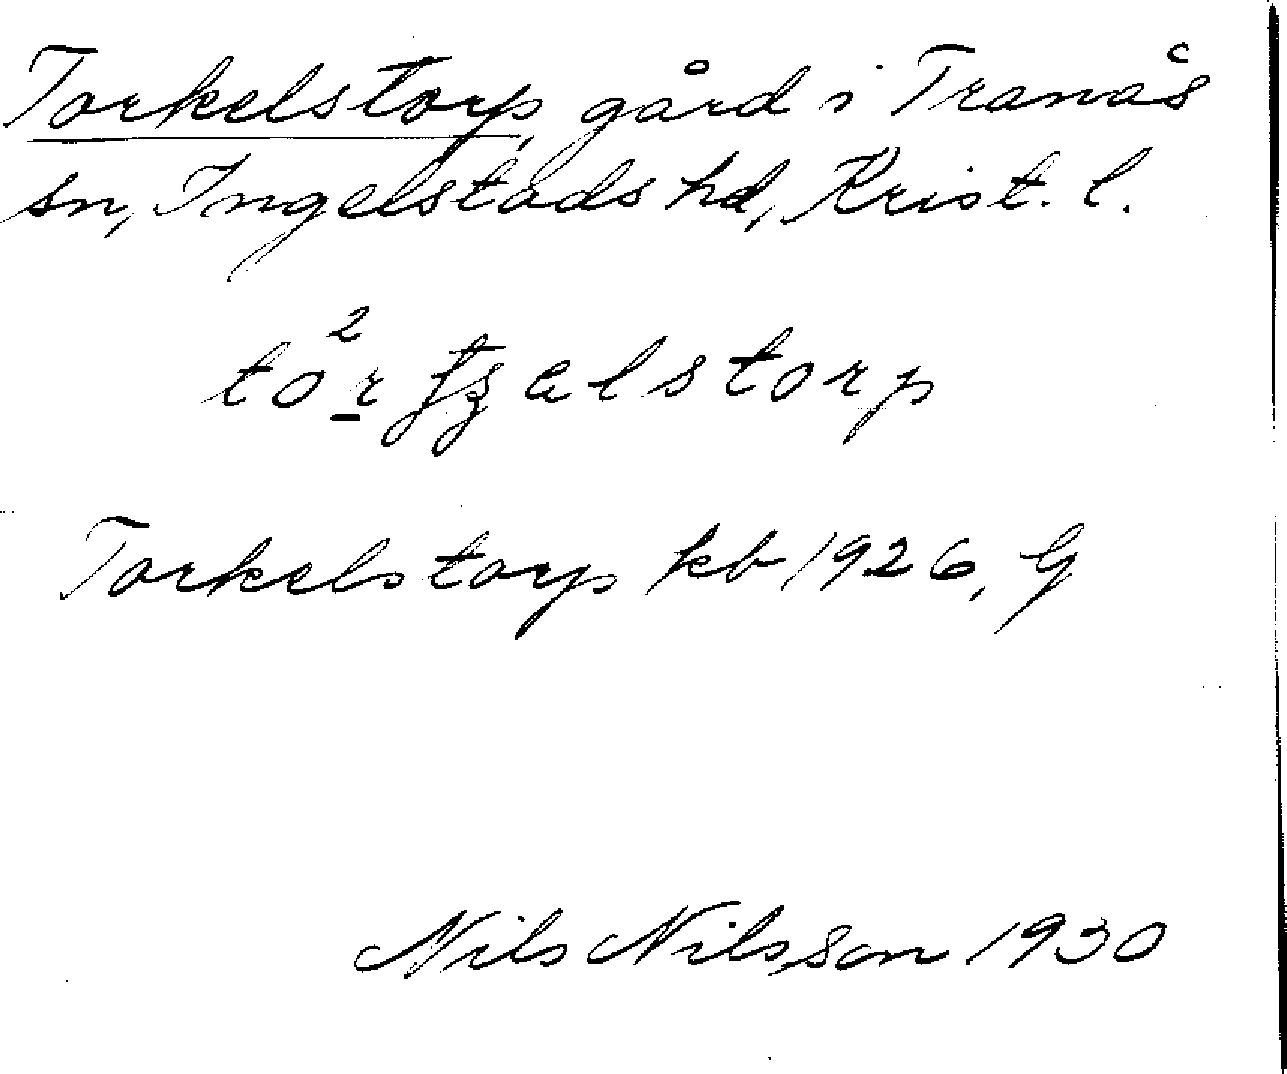 Torkelstorp, gård i Tranås
sn, Ingelstads hd, Krist. l.
Torkelstorp kb 1926, G
Nils Nilsson 1930